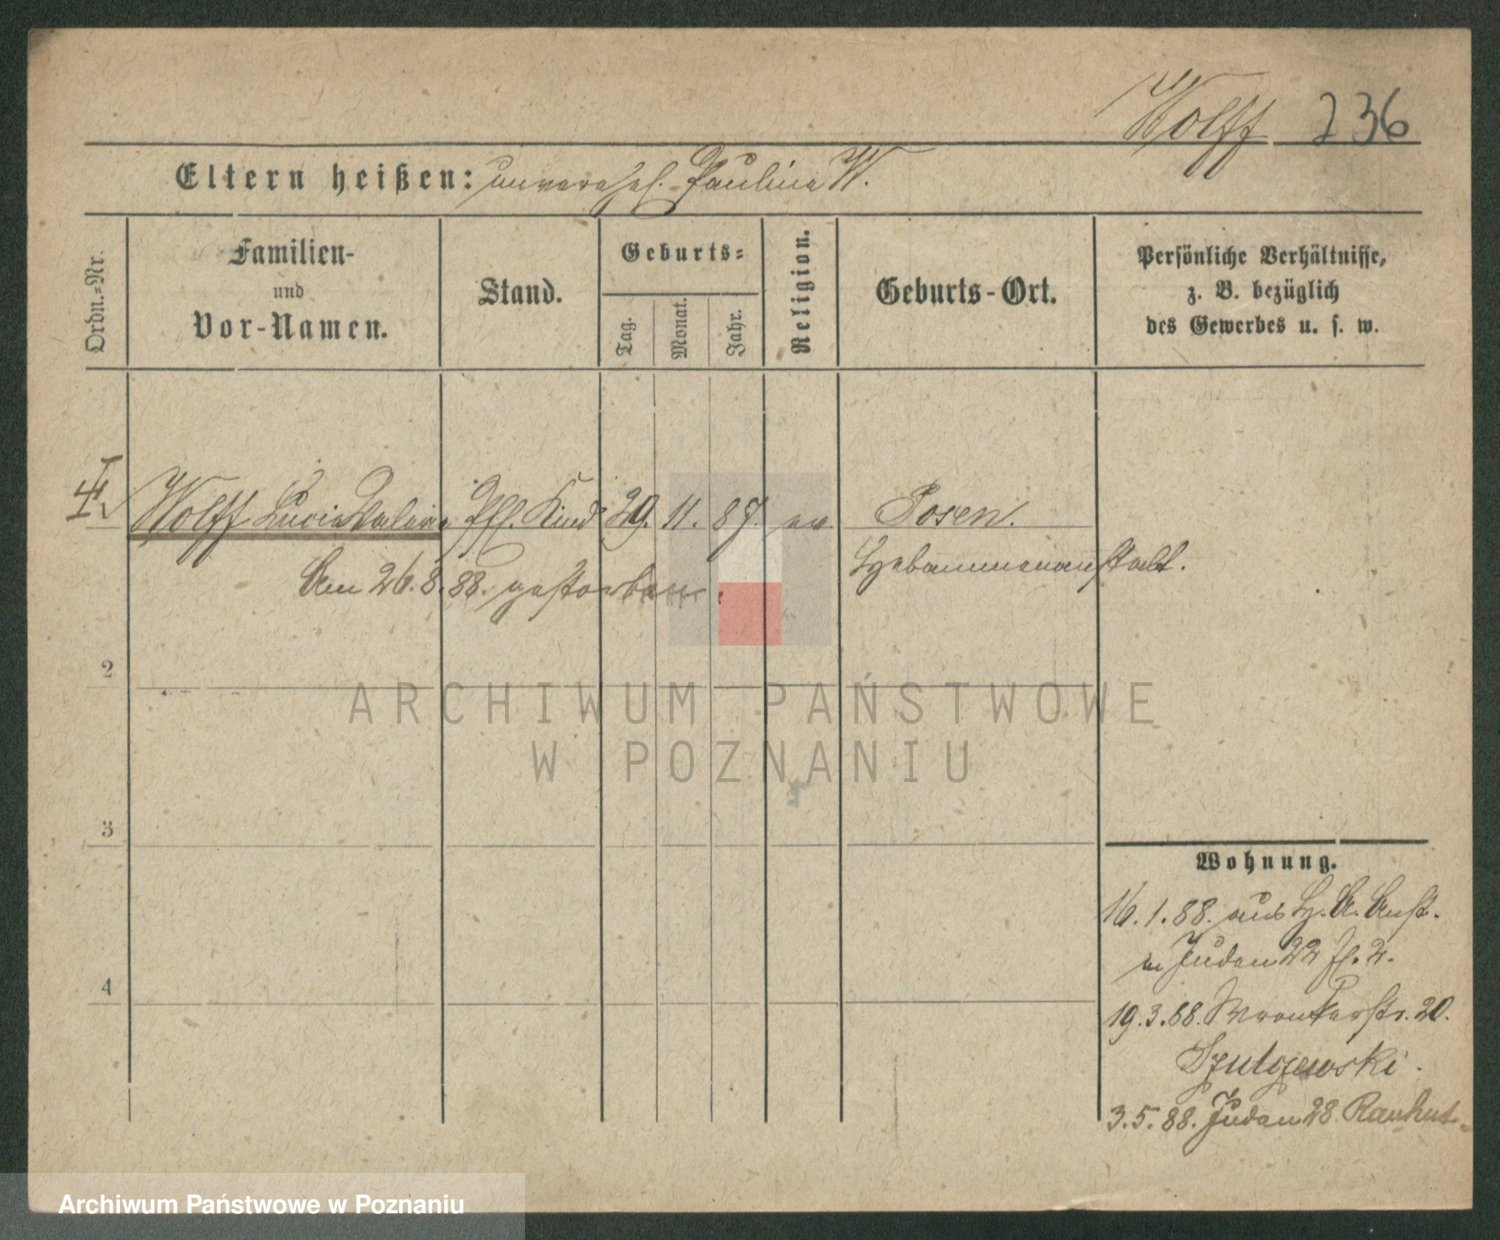 Wolff 236
Eltern heißen: unverehel. Pauline W.
Ordn.-Nr.
Familien-
und
Vor-Namen.
Stand.
Geburts-
Tag.
Monat.
Jahr.
Religion.
Geburts-Ort.
Persönliche Verhältnisse,
z. B. bezüglich
des Gewerbes u. s. w.
Wolff Lucie Pfl. Kind 29. 11. 87. ev. Posen.
Hebammenanstalt.
Am 26.8.88. gestorben.
2
3
4
Wohnung.
16.1.88. aus H. A. Anst.
Juden 22
19.3.88. Wronkerstr. 20.
3.5.88. Juden 28. Rauhut
ARCHIWUM PAŃSTWOWE
W POZNANIU
Archiwum Państwowe w Poznaniu